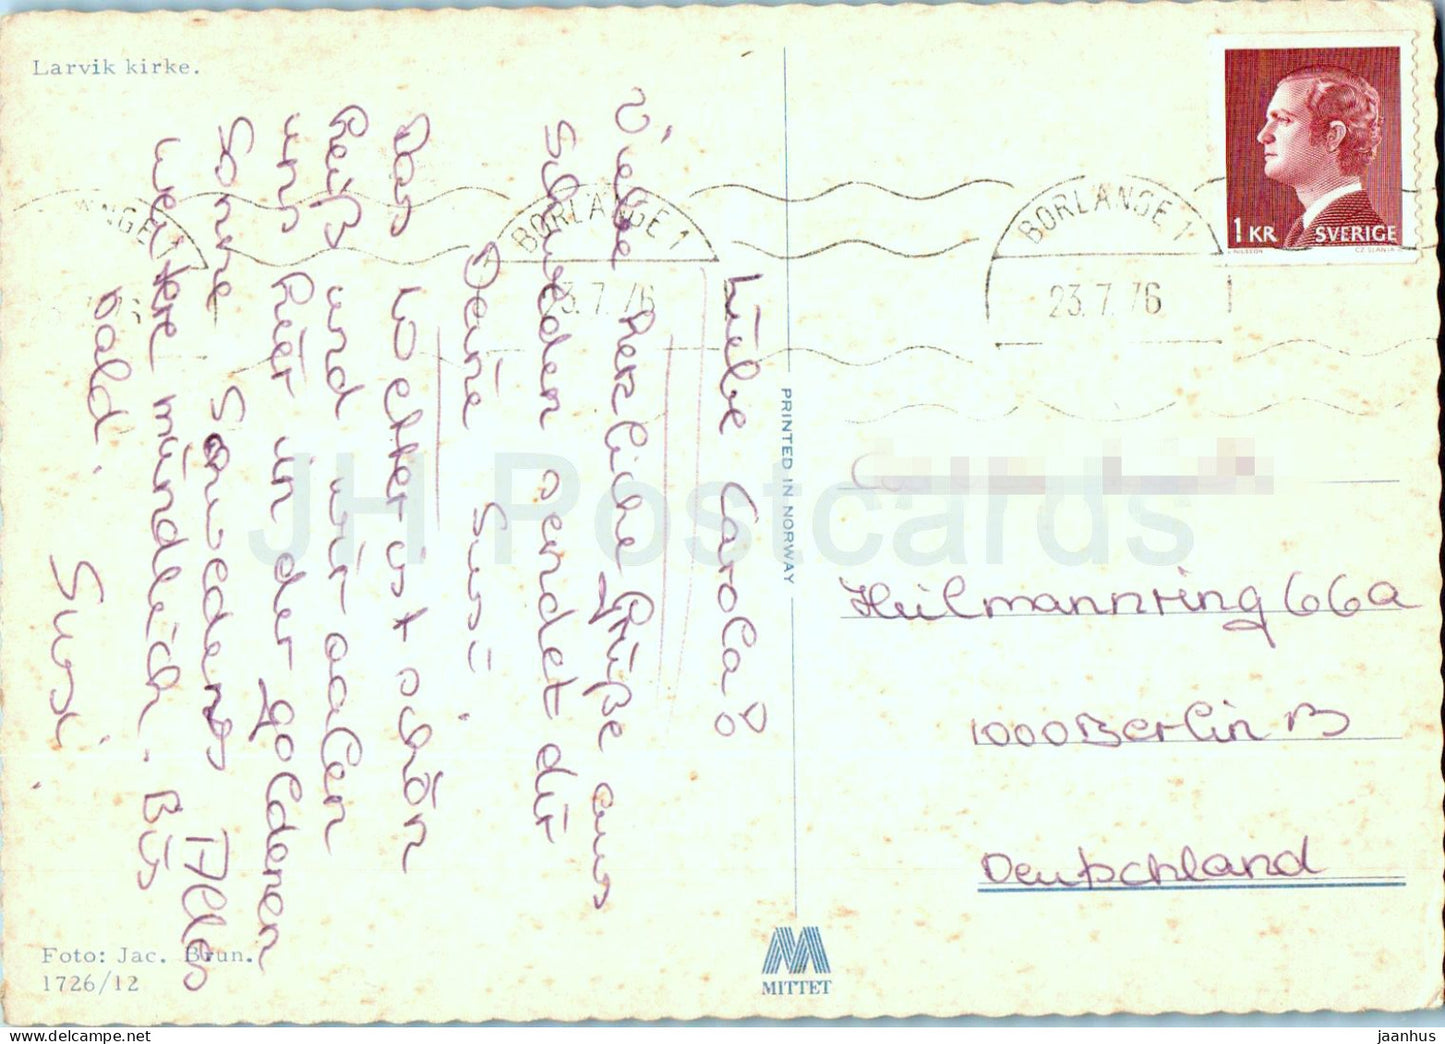 Larvik kirke.
Liebe Carola!
Viele herzliche Grüße aus
Schweden sendet dir
Deine Susi
Das Wetter ist schön
heiß und wir aalen
uns hier in der goldenen
Sonne Schwedens. Alles
weitere mündlich. Bis
bald.
Susi
Foto: Jac. Brun.
1726/12
PRINTED IN NORWAY
MITTET
1 KR SVERIGE
BORLÄNGE 1
23.7.76
BORLÄNGE 1
23.7.76
ÄNGE 1
76
Heilmannring 66a
1000 Berlin 13
Deutschland
JH Postcards
jaanhus